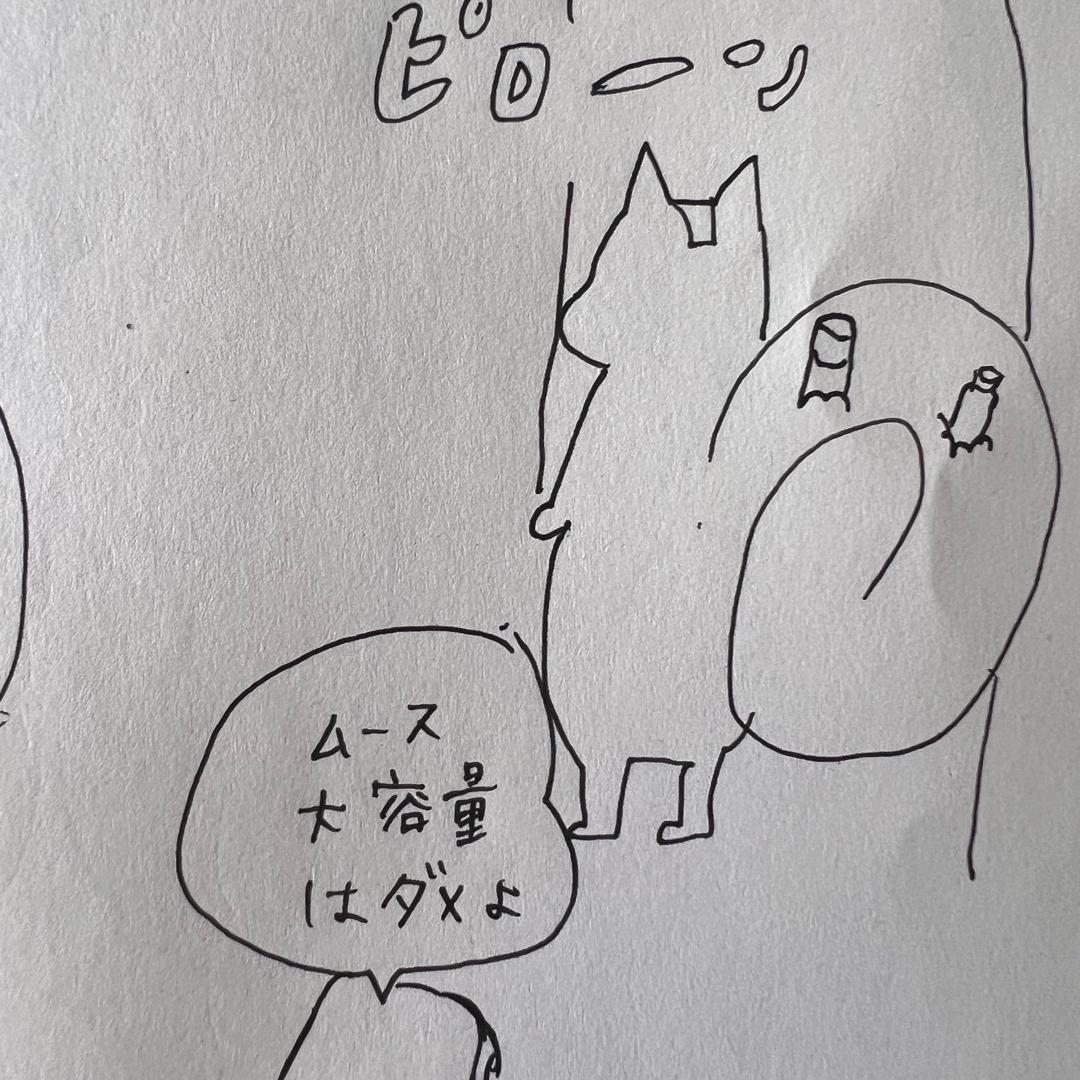 ピローン
ムース
大容量
はダメよ